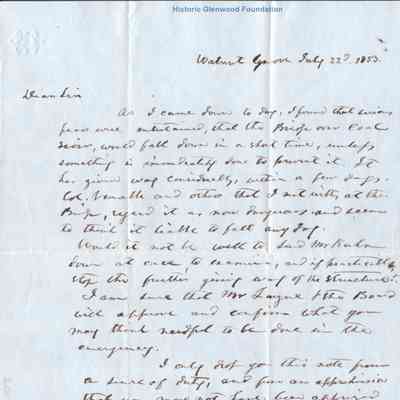 Historic Glenwood Foundation
Walnut Grove July 22d. 1853.
Dear Sir
As I came down to day, I found that serious
fears were entertained, that the Bridge over Coal
would fall down in a short time, unless
something is immediately done to prevent it. It
has given way considerably, within a few days.
Col. and others that I met with, at the
Bridge, regard it as now dangerous and seem
to think it liable to fall any day.
Would it not be well to send Mr
down at once to examine, and if practicable
stop the further giving way of the structure.
I am sure that Mr & the Board
will approve and confirm what you
may think needful to be done in the
emergency.
I only drop you this note from
a sense of duty, and from an apprehension
that you may not have been apprised